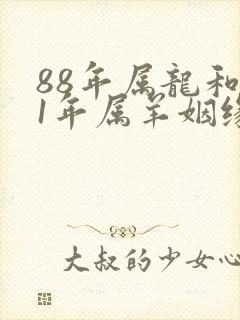 88年属龍和
1年属羊姻缘
大叔的少女心